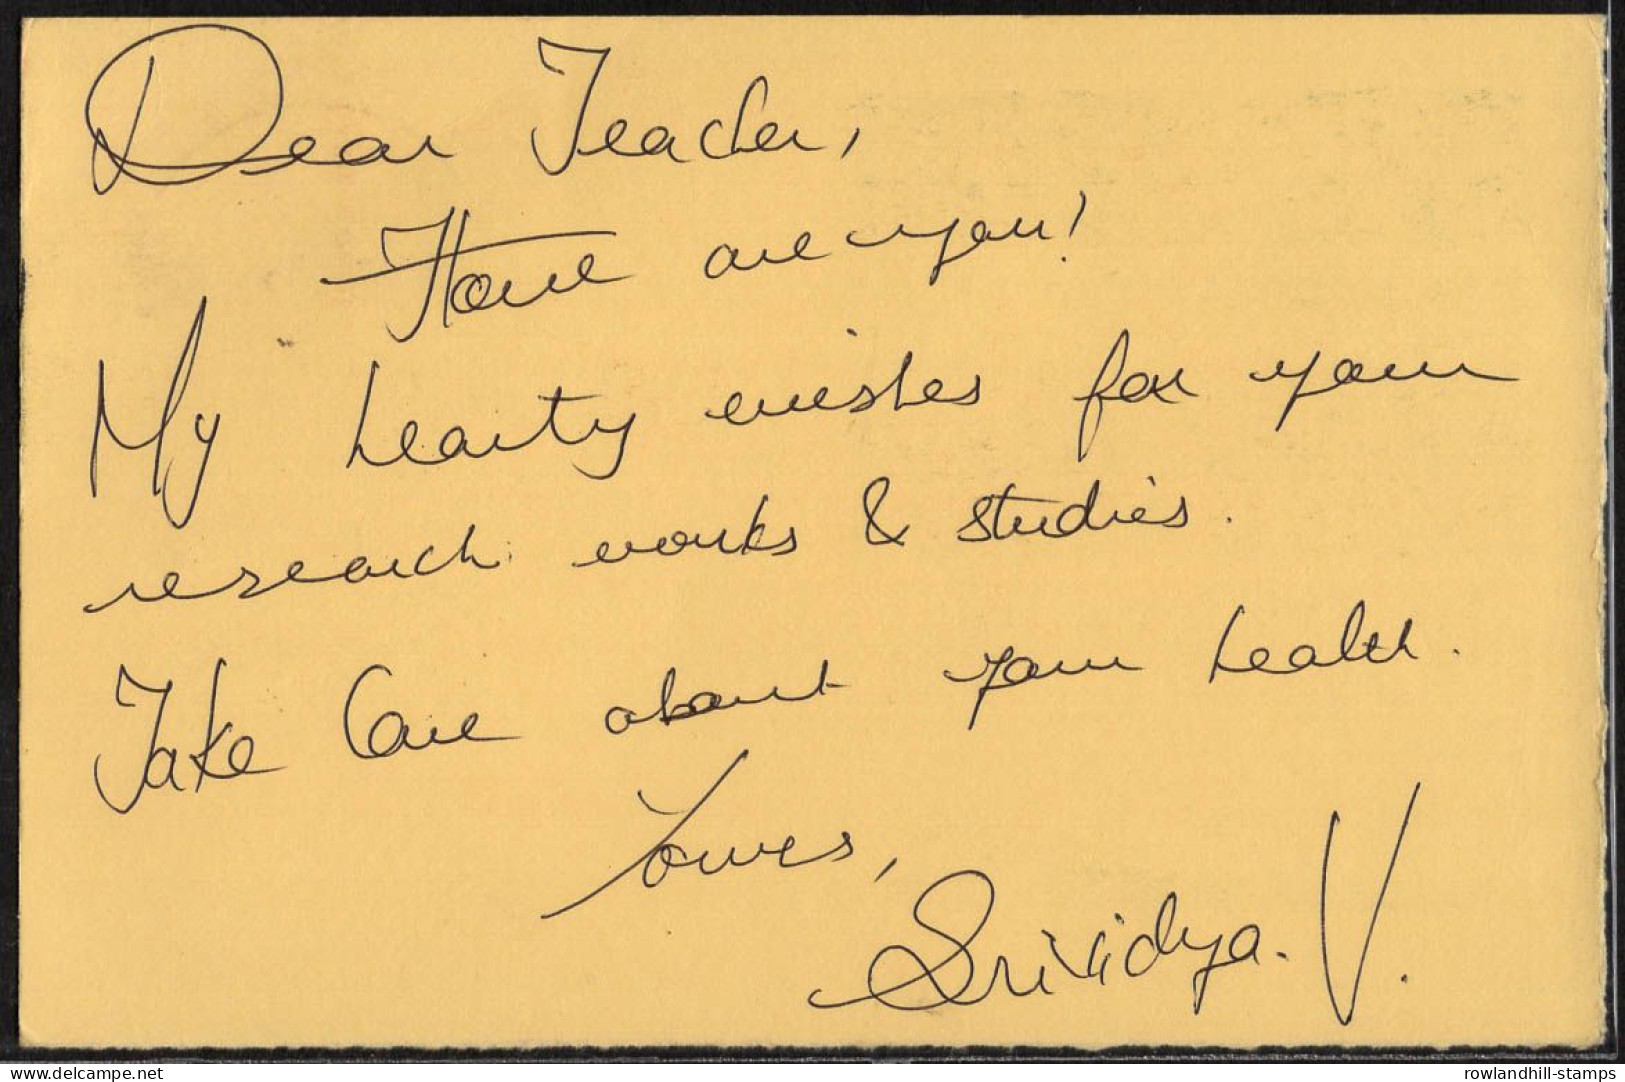 Dear Teacher,
How are you!
My hearty wishes for your
research works & studies.
Take Care about your health.
Yours,
Srividya. V.
delcampe.net
rowlandhill-stamps